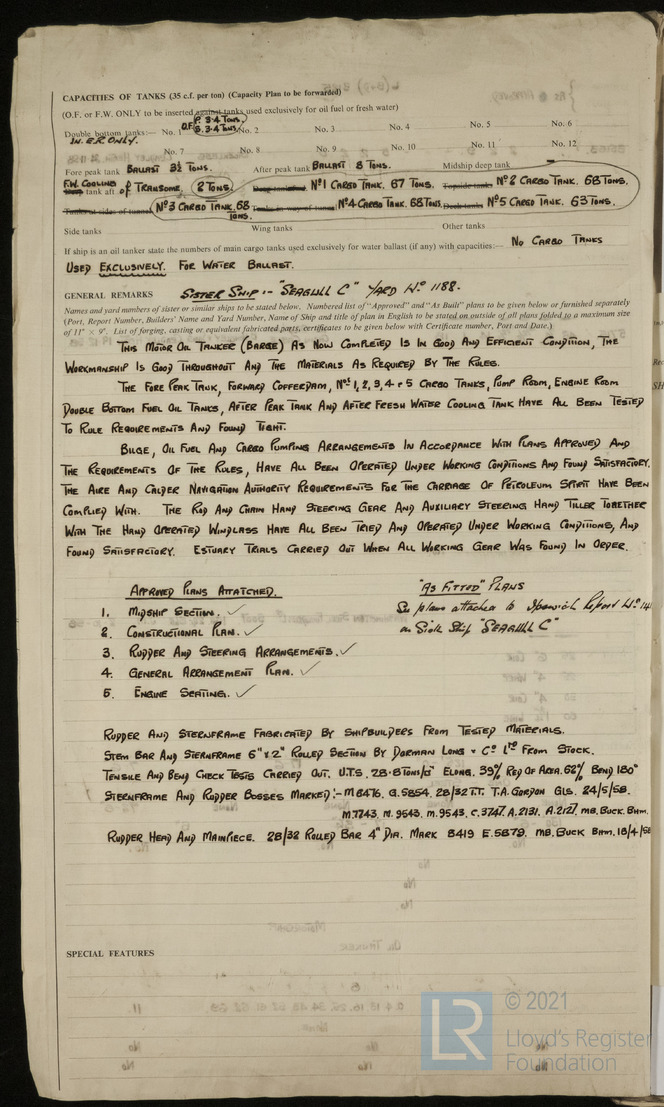 CAPACITIES OF TANKS (35 c.f. per ton) (Capacity Plan to be forwarded)
(O.F. or F.W. ONLY to be inserted against tanks used exclusively for oil fuel or fresh water)
Double bottom tanks:— No. 1 O.F. P. 3.4 TONS. S. 3.4 TONS. No. 2 No. 3 No. 4 No. 5 No. 6
IN E.R. ONLY. No. 7 No. 8 No. 9 No. 10 No. 11 No. 12
Fore peak tank BALLAST 3½ TONS. After peak tank BALLAST 8 TONS. Midship deep tank —
F.W. COOLING tank aft OF TRANSOME. 2 TONS. Nº1 CARGO TANK. 67 TONS. Topside tanks Nº2 CARGO TANK. 68 TONS.
Tanks at sides of tunnel Nº3 CARGO TANK. 68 TONS. Tanks in way of tunnel Nº4 CARGO TANK. 68 TONS. Deck tanks Nº5 CARGO TANK. 63 TONS.
Side tanks Wing tanks Other tanks
If ship is an oil tanker state the numbers of main cargo tanks used exclusively for water ballast (if any) with capacities:— NO CARGO TANKS
USED EXCLUSIVELY. FOR WATER BALLAST.
GENERAL REMARKS SISTER SHIP:- "SEAGULL C" YARD Nº 1188.
Names and yard numbers of sister or similar ships to be stated below. Numbered list of "Approved" and "As Built" plans to be given below or furnished separately
(Port, Report Number, Builders' Name and Yard Number, Name of Ship and title of plan in English to be stated on outside of all plans folded to a maximum size
of 11" × 9". List of forging, casting or equivalent fabricated parts, certificates to be given with Certificate number, Port and Date.)
THIS MOTOR OIL TANKER (BARGE) AS NOW COMPLETED IS IN GOOD AND EFFICIENT CONDITION, THE
WORKMANSHIP IS GOOD THROUGHOUT AND THE MATERIALS AS REQUIRED BY THE RULES.
THE FORE PEAK TANK, FORWARD COFFERDAM, Nºs 1, 2, 3, 4 & 5 CARGO TANKS, PUMP ROOM, ENGINE ROOM
DOUBLE BOTTOM FUEL OIL TANKS, AFTER PEAK TANK AND AFTER FRESH WATER COOLING TANK HAVE ALL BEEN TESTED
TO RULE REQUIREMENTS AND FOUND TIGHT.
BILGE, OIL FUEL AND CARGO PUMPING ARRANGEMENTS IN ACCORDANCE WITH PLANS APPROVED AND
THE REQUIREMENTS OF THE RULES, HAVE ALL BEEN OPERATED UNDER WORKING CONDITIONS AND FOUND SATISFACTORY.
THE AIRE AND CALDER NAVIGATION AUTHORITY REQUIREMENTS FOR THE CARRIAGE OF PETROLEUM SPIRIT HAVE BEEN
COMPLIED WITH. THE ROD AND CHAIN HAND STEERING GEAR AND AUXILIARY STEERING HAND TILLER TOGETHER
WITH THE HAND OPERATED WINDLASS HAVE ALL BEEN TRIED AND OPERATED UNDER WORKING CONDITIONS, AND
FOUND SATISFACTORY. ESTUARY TRIALS CARRIED OUT WHEN ALL WORKING GEAR WAS FOUND IN ORDER.
APPROVED PLANS ATTATCHED.
1. MIDSHIP SECTION. ✓
2. CONSTRUCTIONAL PLAN. ✓
3. RUDDER AND STEERING ARRANGEMENTS. ✓
4. GENERAL ARRANGEMENT PLAN. ✓
5. ENGINE SEATING. ✓
"AS FITTED" PLANS
See plans attached to Ipswich Report Nº 141
on Sister Ship "SEAGULL C"
RUDDER AND STERNFRAME FABRICATED BY SHIPBUILDERS FROM TESTED MATERIALS.
STEM BAR AND STERNFRAME 6" x 2" ROLLED SECTION BY DORMAN LONG & Cº LTD FROM STOCK.
TENSILE AND BEND CHECK TESTS CARRIED OUT. U.T.S. 28.8 TONS/□" ELONG. 39% RED OF AREA. 62% BEND 180°
STERNFRAME AND RUDDER BOSSES MARKED:- M8476. G.5854. 28/32 T.T. T.A. GORDON GLS. 24/5/58.
M.7243. M.9543. M.9543. C.3747. A.2131. A.2127. MB. BUCK. BHM.
RUDDER HEAD AND MAINPIECE. 28/32 ROLLED BAR 4" DIA. MARK 8419 E.5879. MB. BUCK BHM. 18/4/58
SPECIAL FEATURES
LR
© 2021
Lloyd's Register
Foundation